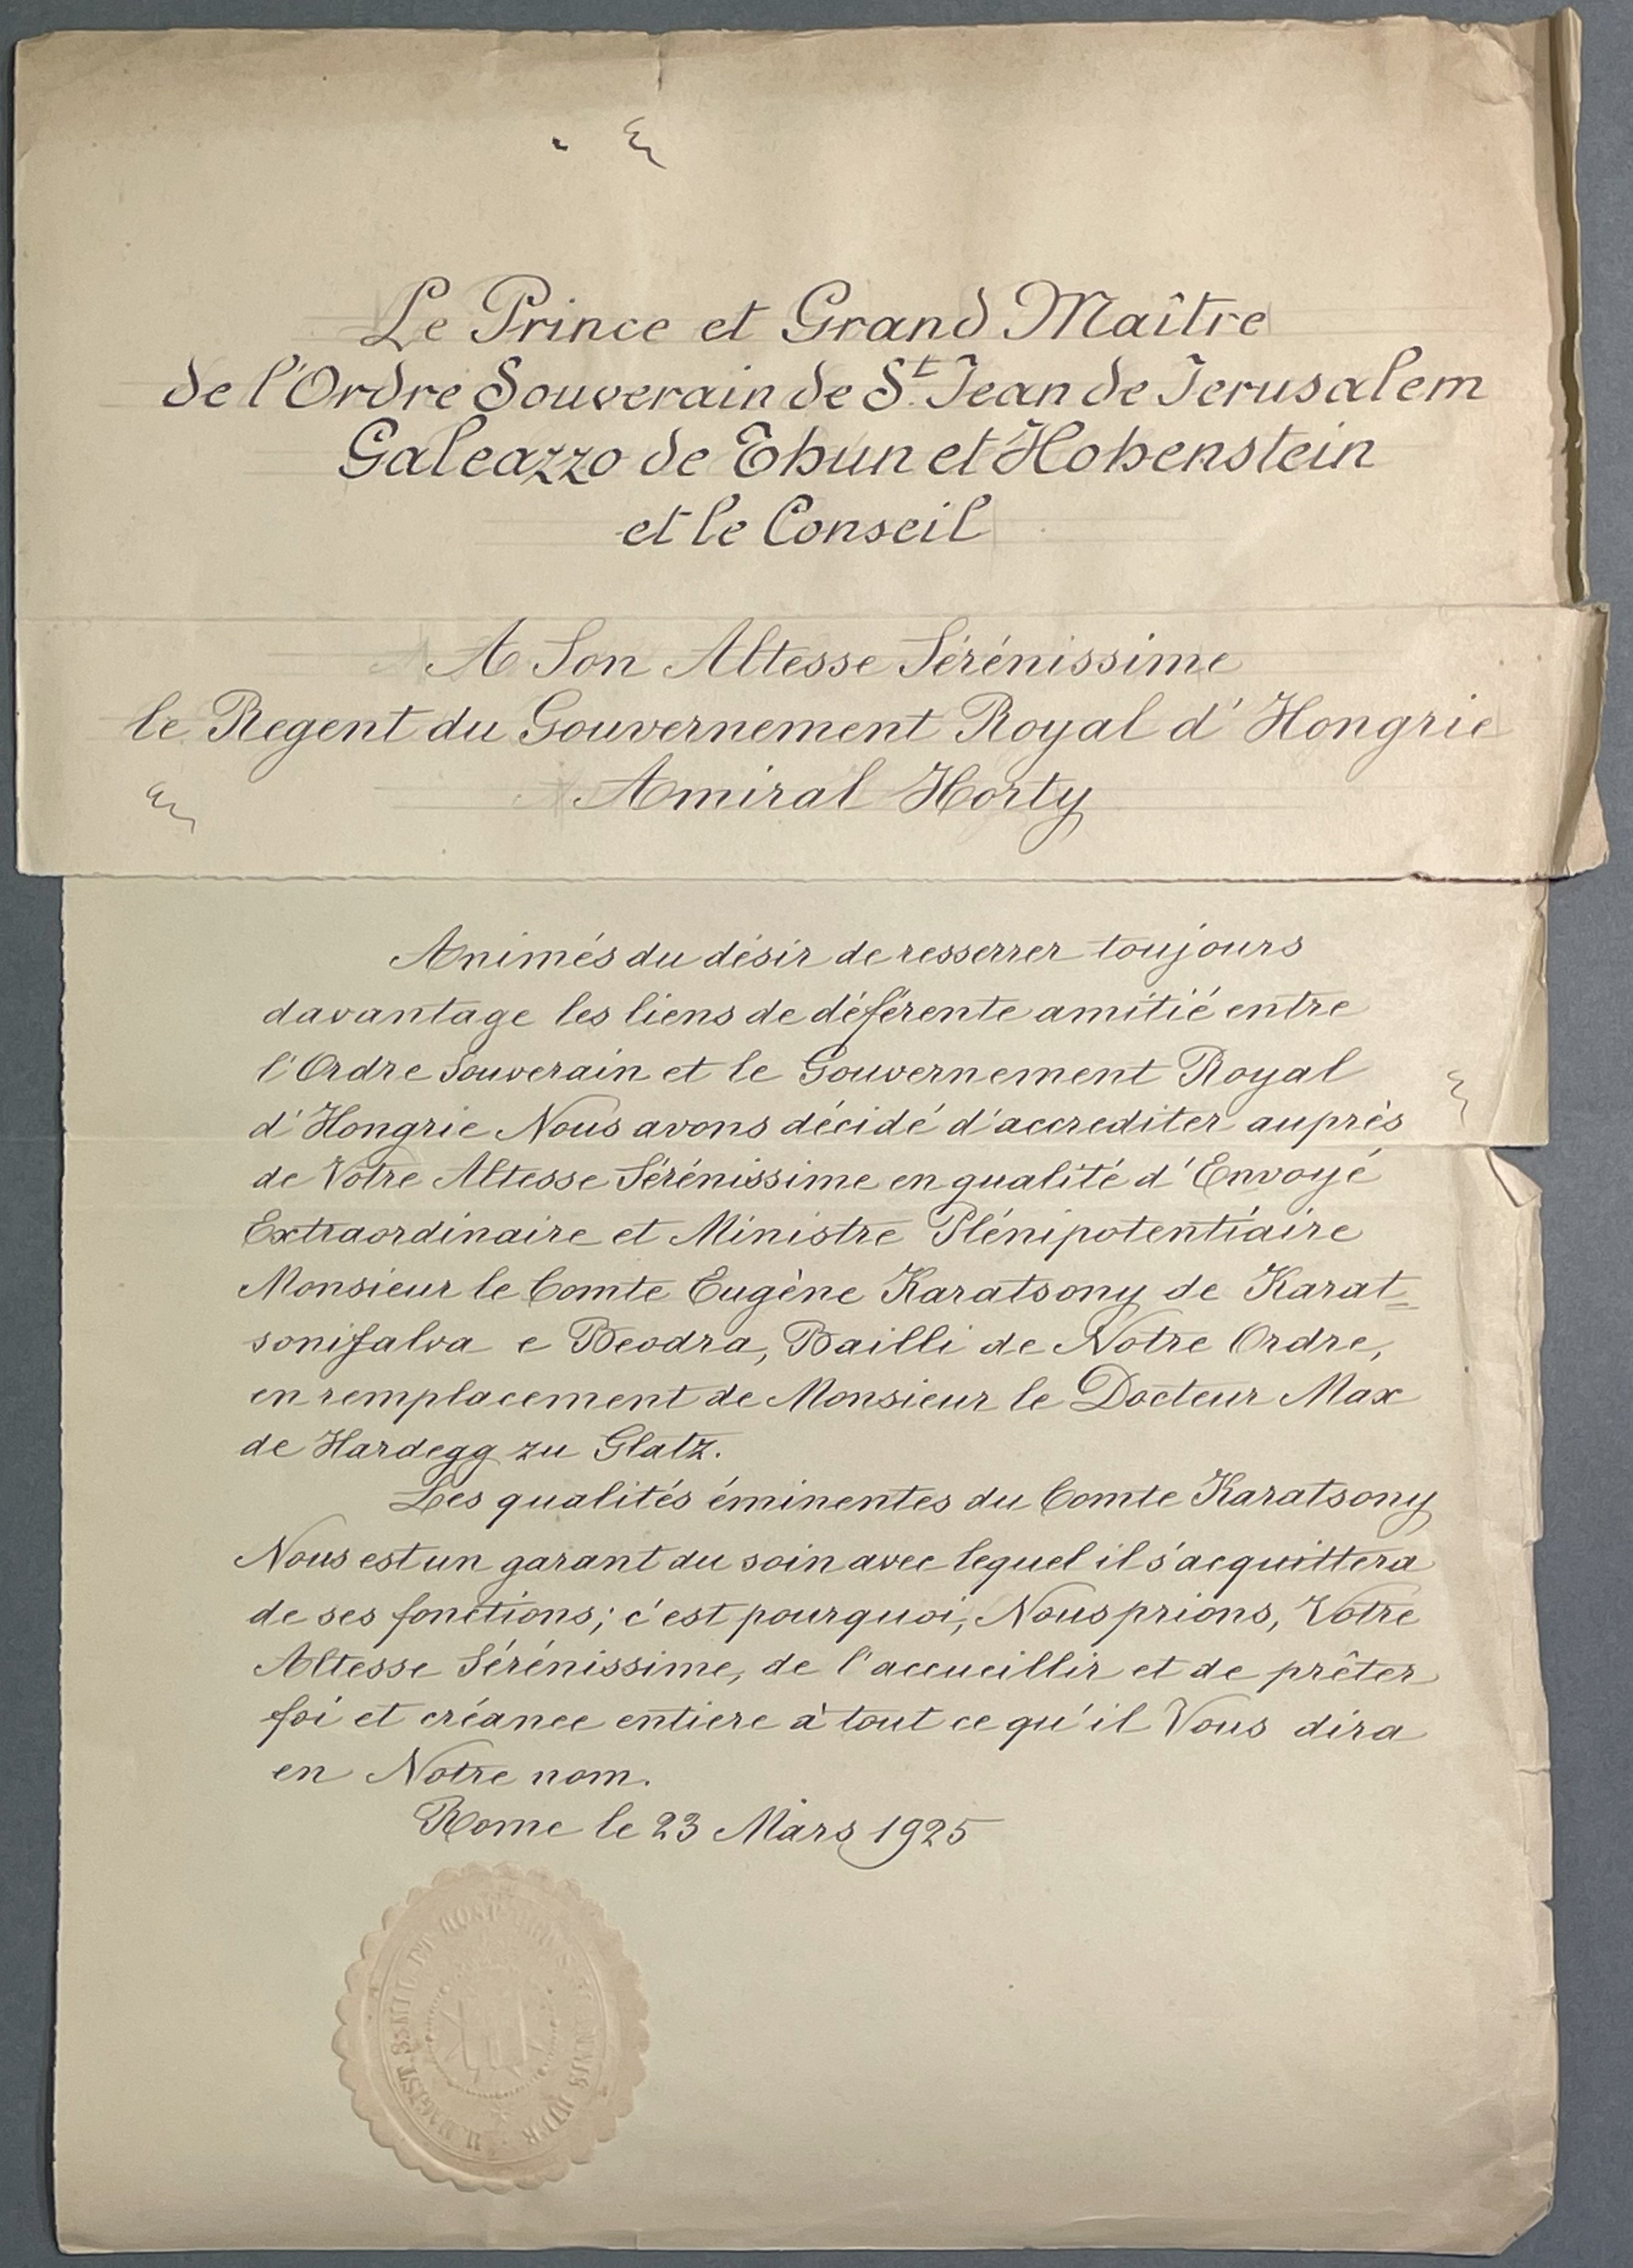 Le Prince et Grand Maître
de l'Ordre Souverain de St. Jean de Jerusalem
Galeazzo de Thun et Hohenstein
et le Conseil
A Son Altesse Sérénissime
le Regent du Gouvernement Royal d'Hongrie
Amiral Horty
Animés du désir de resserrer toujours
davantage les liens de déférente amitié entre
l'Ordre Souverain et le Gouvernement Royal
d'Hongrie Nous avons décidé d'accrediter auprès
de Votre Altesse Sérénissime en qualité d'Envoyé
Extraordinaire et Ministre Plénipotentiaire
Monsieur le Comte Eugène Karatsony de Karat=
sonifalva e Beodra, Bailli de Notre Ordre,
en remplacement de Monsieur le Docteur Max
de Hardegg zu Glatz.
Les qualités éminentes du Comte Karatsony
Nous est un garant du soin avec lequel il s'acquittera
de ses fonctions; c'est pourquoi, Nous prions, Votre
Altesse Sérénissime, de l'accueillir et de prêter
foi et créance entiere à tout ce qu'il Vous dira
en Notre nom.
Rome le 23 Mars 1925